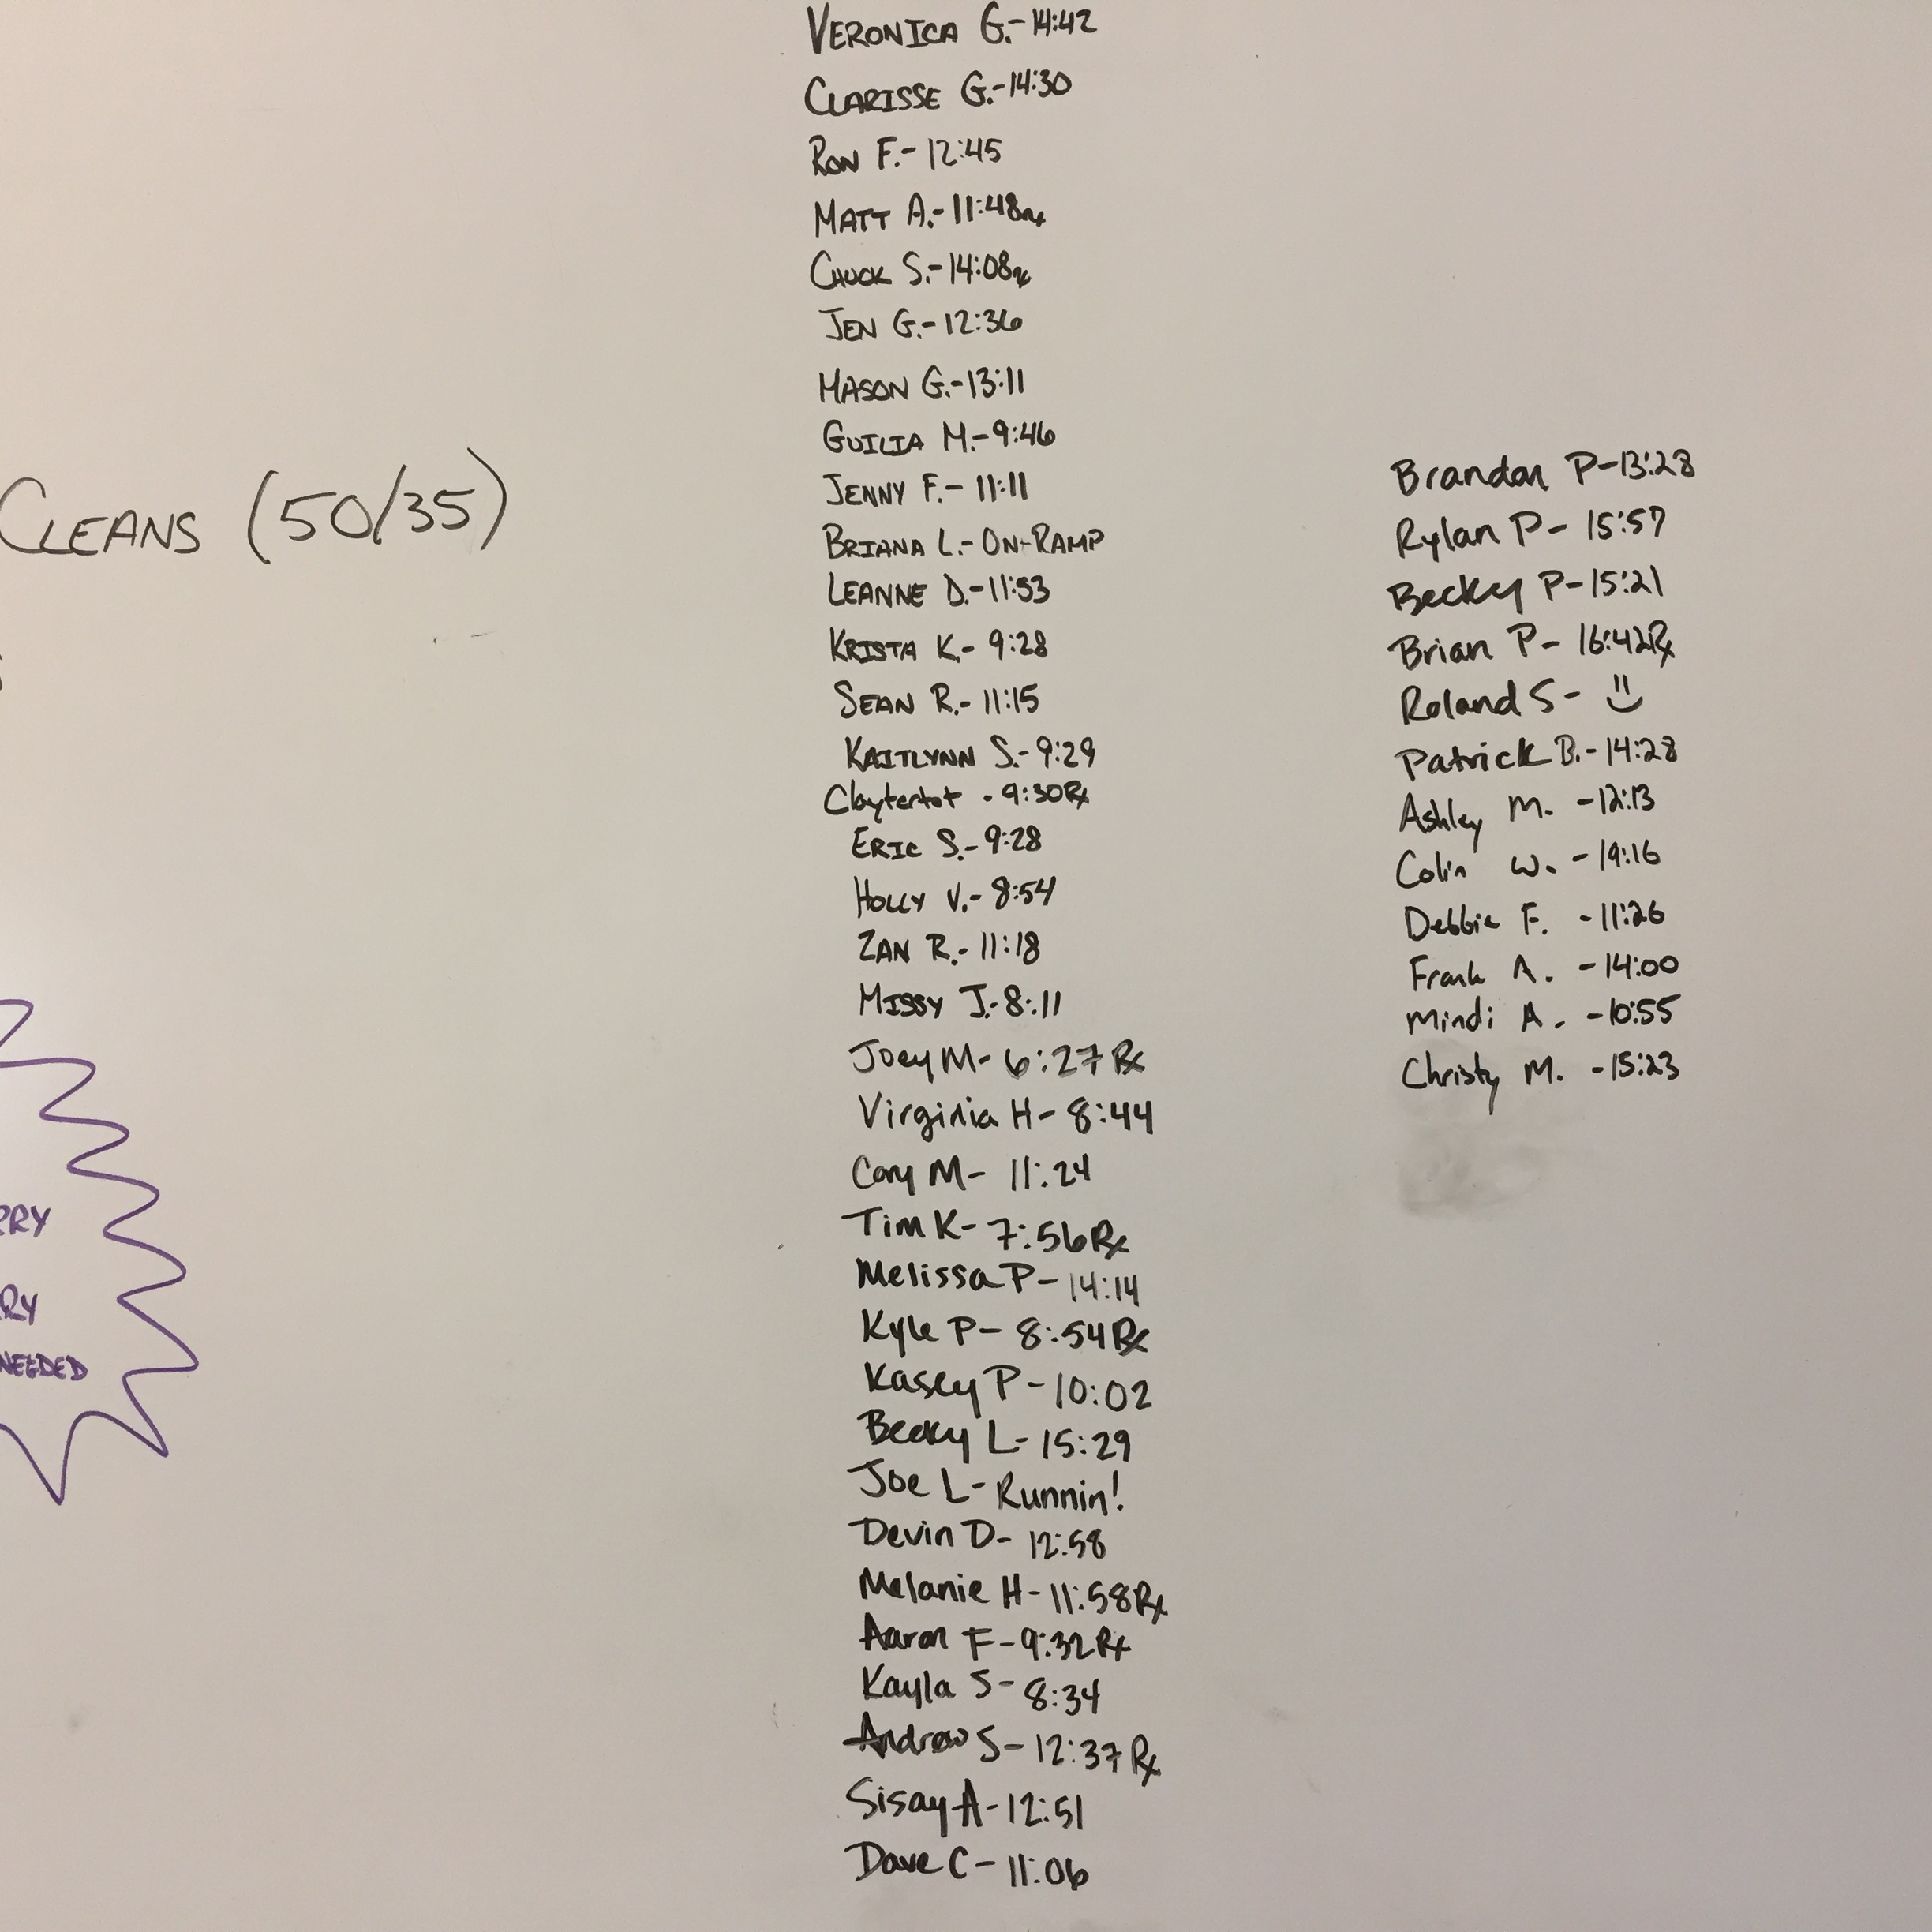 CLEANS (50/35)
RRY
RY
NEEDED
VERONICA G.-14:42
CLARISSE G.-14:30
RON F.- 12:45
MATT A.- 11:48Rx
CHUCK S.- 14:08Rx
JEN G.- 12:36
MASON G.-13:11
GUILIA M.- 9:46
JENNY F.- 11:11
BRIANA L.- ON-RAMP
LEANNE D.- 11:53
KRISTA K.- 9:28
SEAN R.- 11:15
KAITLYNN S.- 9:29
Claytertot - 9:30Rx
ERIC S.- 9:28
HOLLY V.- 8:54
ZAN R.- 11:18
MISSY J.- 8:11
Joey M- 6:27 Rx
Virginia H- 8:44
Cory M- 11:24
Tim K- 7:56Rx
Melissa P- 14:14
Kyle P- 8:54Rx
Kasey P- 10:02
Becky L- 15:29
Joe L- Runnin!
Devin D- 12:58
Melanie H- 11:58Rx
Aaron F- 9:32Rx
Kayla S- 8:34
Andrew S- 12:37 Rx
Sisay A- 12:51
Dave C- 11:06
Brandon P-13:28
Rylan P- 15:57
Becky P-15:21
Brian P- 16:42Rx
Roland S-
Patrick B.-14:28
Ashley M. -12:13
Colin W. -19:16
Debbie F. -11:26
Frank A. -14:00
Mindi A. -10:55
Christy M. -15:23